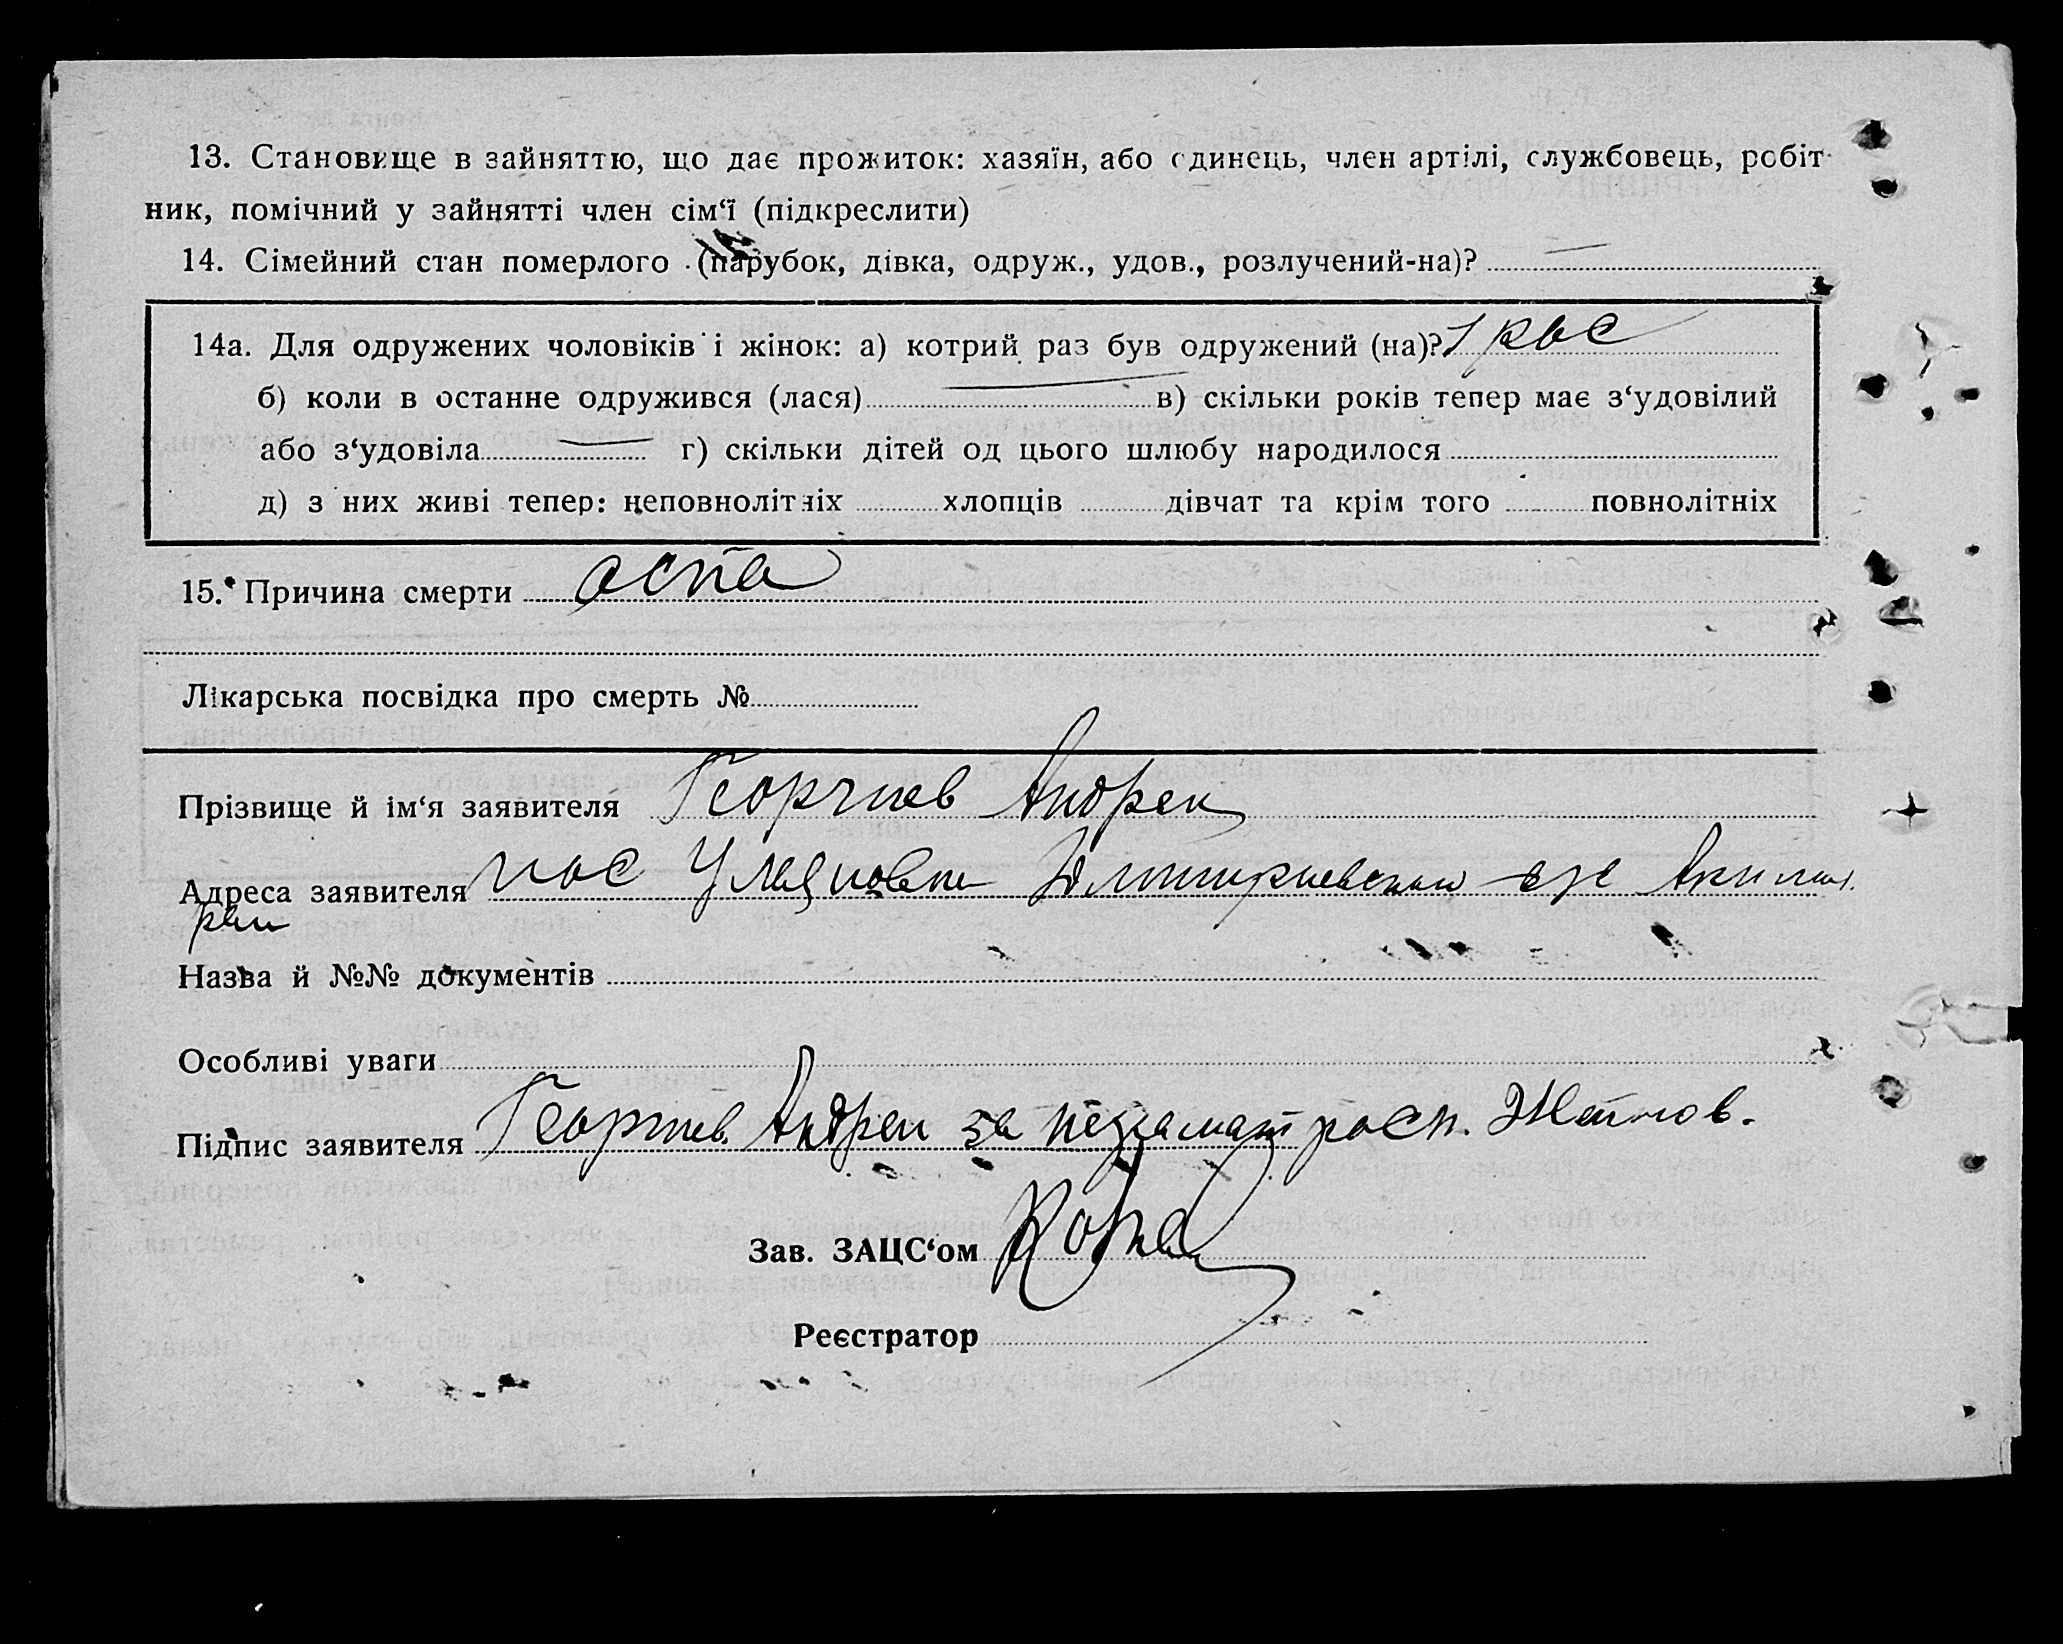 13. Становище в зайняттю, що дає прожиток: хазяїн, або єдинець, член артілі, службовець, робіт
ник, помічний у зайнятті член сім‘ї (підкреслити)
14. Сімейний стан померлого (парубок, дівка, одруж., удов., розлучений-на)?
14а. Для одружених чоловіків і жінок: а) котрий раз був одружений (на)? 1 рос
б) коли в останне одружився (лася) в) скільки років тепер має з‘удовілий
або з‘удовіла г) скільки дітей од цього шлюбу народилося
д) з них живі тепер: неповнолітніх хлопців дівчат та крім того повнолітніх
15. Причина смерти оспа
Лікарська посвідка про смерть №
Прізвище й ім‘я заявителя Георгиев Андреи
Адреса заявителя пос
Назва й №№ документів
Особливі уваги
Підпис заявителя Георгиев Андреи за росп.
Зав. ЗАЦС‘ом
Реєстратор